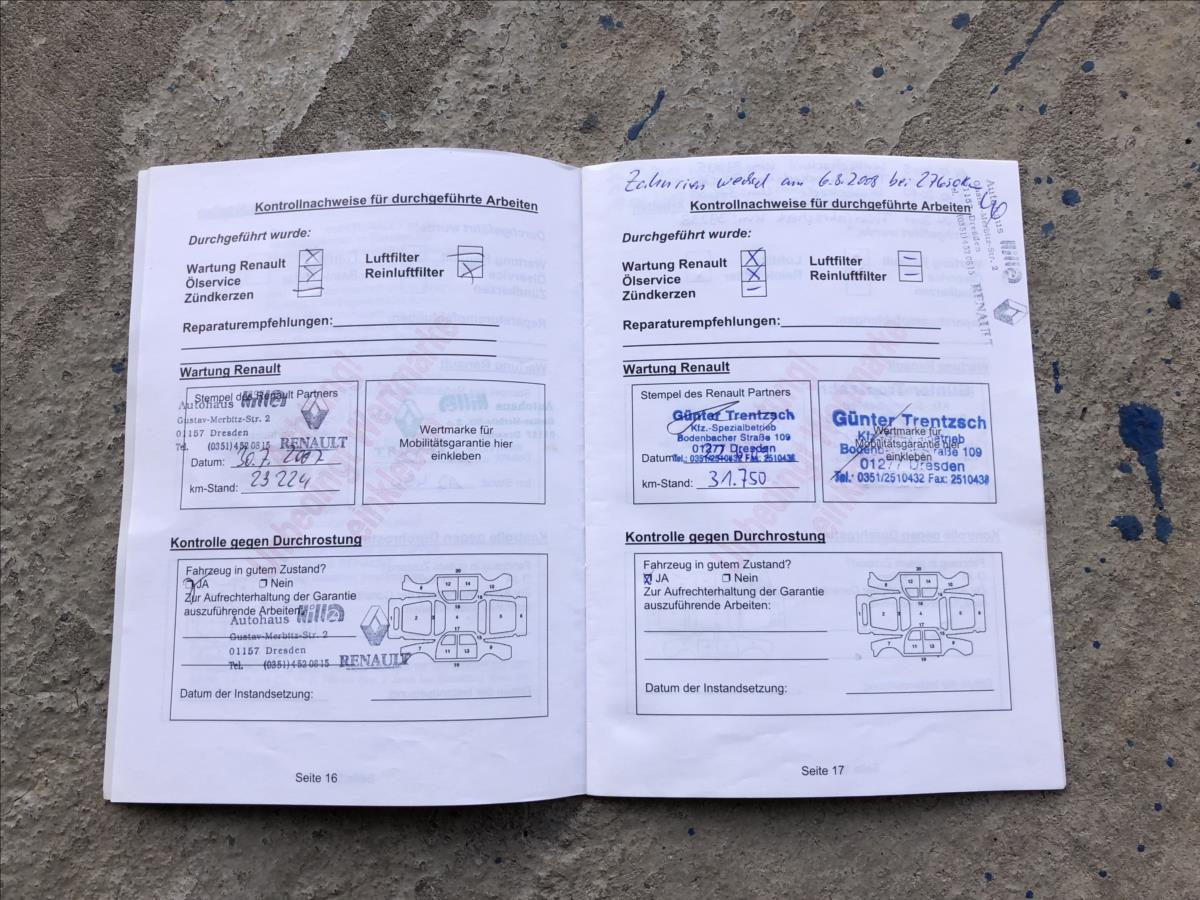 Kontrollnachweise für durchgeführte Arbeiten
Durchgeführt wurde:
Wartung Renault
Ölservice
Zündkerzen
Luftfilter
Reinluftfilter
Reparaturempfehlungen:
Wartung Renault
Stempel des Renault Partners
Autohaus
Gustav-Merbitz-Str. 2
01157 Dresden
Tel. (0351) 452 08 15 RENAULT
Datum: 30.7. 2007
km-Stand: 23 224
Wertmarke für
Mobilitätsgarantie hier
einkleben
Kontrolle gegen Durchrostung
Fahrzeug in gutem Zustand?
JA Nein
Zur Aufrechterhaltung der Garantie
auszuführende Arbeiten:
Autohaus
Gustav-Merbitz-Str. 2
01157 Dresden
Tel. (0351) 452 08 15 RENAULT
Datum der Instandsetzung:
Seite 16
Zahnriemenwechsel am 6.8.2008 bei
Kontrollnachweise für durchgeführte Arbeiten
Durchgeführt wurde:
Wartung Renault
Ölservice
Zündkerzen
Luftfilter
Reinluftfilter
Reparaturempfehlungen:
Autohaus
Gustav-Merbitz-Str. 2
01157 Dresden
Tel. (0351) 452 08 15 RENAULT
Wartung Renault
Stempel des Renault Partners
Günter Trentzsch
Kfz.-Spezialbetrieb
Bodenbacher Straße 109
01277 Dresden
Tel.: 0351/2510432 Fax: 2510438
Datum:
km-Stand: 31.750
Günter Trentzsch
Wertmarke für
Mobilitätsgarantie hier
einkleben
01277 Dresden
Tel.: 0351/2510432 Fax: 2510438
Kontrolle gegen Durchrostung
Fahrzeug in gutem Zustand?
JA Nein
Zur Aufrechterhaltung der Garantie
auszuführende Arbeiten:
Datum der Instandsetzung:
Seite 17